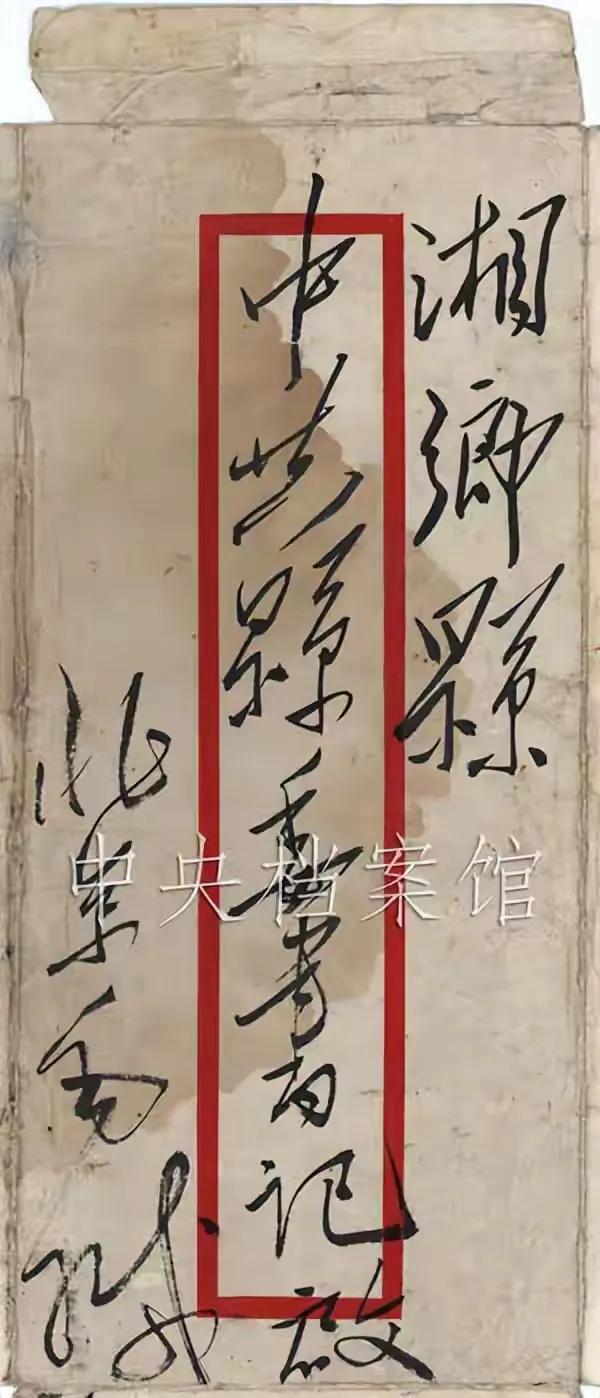 湘鄉縣
中共縣委書記啟
北京毛緘
中央档案馆